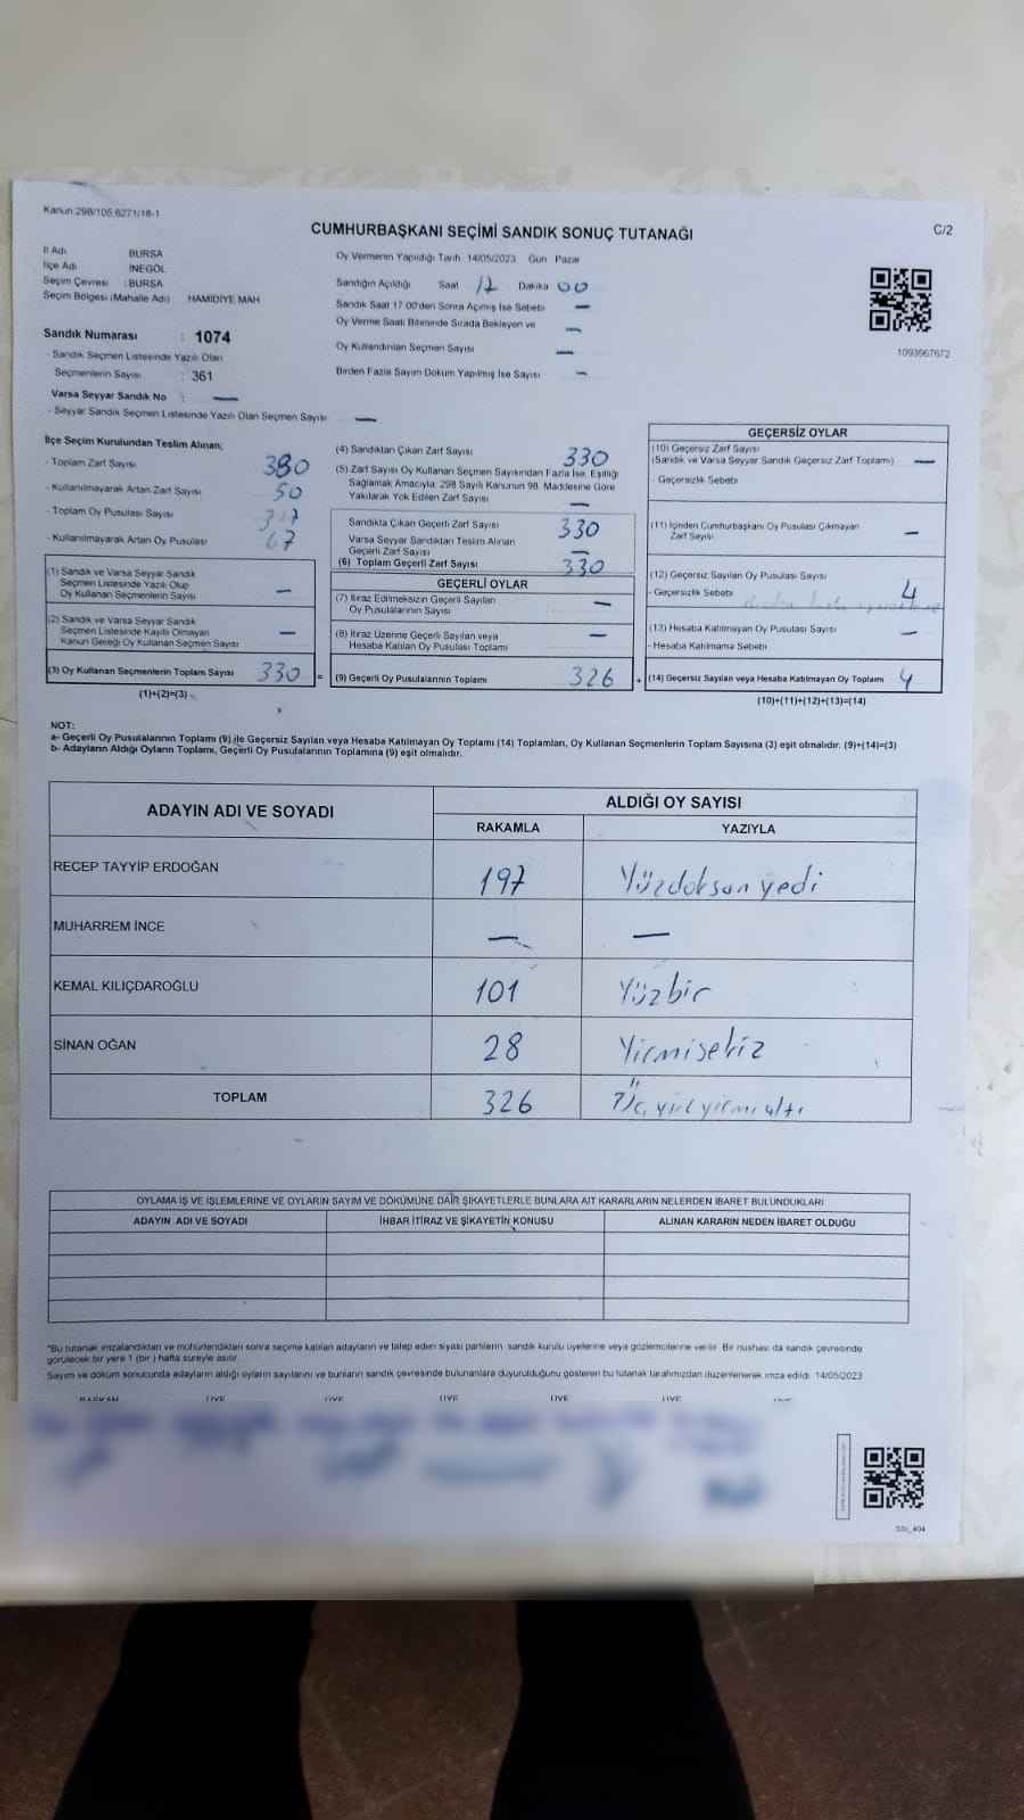 Kanun 298/105,6271/18-1
CUMHURBAŞKANI SEÇİMİ SANDIK SONUÇ TUTANAĞI
C/2
İl Adı BURSA
İlçe Adı İNEGÖL
Seçim Çevresi : BURSA
Seçim Bölgesi (Mahalle Adı) HAMİDİYE MAH
Sandık Numarası : 1074
- Sandık Seçmen Listesinde Yazılı Olan
Seçmenlerin Sayısı : 361
Varsa Seyyar Sandık No : —
- Seyyar Sandık Seçmen Listesinde Yazılı Olan Seçmen Sayısı —
Oy Vermenin Yapıldığı Tarih 14/05/2023 Gün Pazar
Sandığın Açıldığı Saat 17 Dakika 00
Sandık Saat 17.00'den Sonra Açılmış İse Sebebi —
Oy Verme Saati Bitiminde Sırada Bekleyen ve —
Oy Kullandırılan Seçmen Sayısı —
Birden Fazla Sayım Döküm Yapılmış İse Sayısı —
1093967672
İlçe Seçim Kurulundan Teslim Alınan;
- Toplam Zarf Sayısı 380
- Kullanılmayarak Artan Zarf Sayısı 50
- Toplam Oy Pusulası Sayısı
- Kullanılmayarak Artan Oy Pusulası 67
(1) Sandık ve Varsa Seyyar Sandık
Seçmen Listesinde Yazılı Olup
Oy Kullanan Seçmenlerin Sayısı —
(2) Sandık ve Varsa Seyyar Sandık
Seçmen Listesinde Kayıtlı Olmayan
Kanun Gereği Oy Kullanan Seçmen Sayısı —
(3) Oy Kullanan Seçmenlerin Toplam Sayısı 330 =
(1)+(2)=(3)
(4) Sandıktan Çıkan Zarf Sayısı 330
(5) Zarf Sayısı Oy Kullanan Seçmen Sayısından Fazla İse, Eşitliği
Sağlamak Amacıyla, 298 Sayılı Kanunun 98. Maddesine Göre
Yakılarak Yok Edilen Zarf Sayısı —
Sandıkta Çıkan Geçerli Zarf Sayısı 330
Varsa Seyyar Sandıktan Teslim Alınan
Geçerli Zarf Sayısı —
(6) Toplam Geçerli Zarf Sayısı 330
GEÇERLİ OYLAR
(7) İtiraz Edilmeksizin Geçerli Sayılan
Oy Pusulalarının Sayısı —
(8) İtiraz Üzerine Geçerli Sayılan veya
Hesaba Katılan Oy Pusulası Toplamı —
(9) Geçerli Oy Pusulalarının Toplamı 326 +
GEÇERSİZ OYLAR
(10) Geçersiz Zarf Sayısı
(Sandık ve Varsa Seyyar Sandık Geçersiz Zarf Toplamı) —
- Geçersizlik Sebebi
(11) İçinden Cumhurbaşkanı Oy Pusulası Çıkmayan
Zarf Sayısı —
(12) Geçersiz Sayılan Oy Pusulası Sayısı 4
- Geçersizlik Sebebi
(13) Hesaba Katılmayan Oy Pusulası Sayısı —
- Hesaba Katılmama Sebebi
(14) Geçersiz Sayılan veya Hesaba Katılmayan Oy Toplamı 4
(10)+(11)+(12)+(13)=(14)
NOT:
a- Geçerli Oy Pusulalarının Toplamı (9) ile Geçersiz Sayılan veya Hesaba Katılmayan Oy Toplamı (14) Toplamları, Oy Kullanan Seçmenlerin Toplam Sayısına (3) eşit olmalıdır. (9)+(14)=(3)
b- Adayların Aldığı Oyların Toplamı, Geçerli Oy Pusulalarının Toplamına (9) eşit olmalıdır.
ADAYIN ADI VE SOYADI ALDIĞI OY SAYISI
RAKAMLA YAZIYLA
RECEP TAYYİP ERDOĞAN 197 Yüzdoksan yedi
MUHARREM İNCE — —
KEMAL KILIÇDAROĞLU 101 Yüzbir
SİNAN OĞAN 28 Yirmisekiz
TOPLAM 326 Üç yüz yirmi altı
OYLAMA İŞ VE İŞLEMLERİNE VE OYLARIN SAYIM VE DÖKÜMÜNE DAİR ŞİKAYETLERLE BUNLARA AİT KARARLARIN NELERDEN İBARET BULUNDUKLARI
ADAYIN ADI VE SOYADI İHBAR İTİRAZ VE ŞİKAYETİN KONUSU ALINAN KARARIN NEDEN İBARET OLDUĞU
"Bu tutanak imzalandıktan ve mühürlendikten sonra seçime katılan adayların ve talep eden siyasi partilerin sandık kurulu üyelerine veya gözlemcilerine verilir. Bir nüshası da sandık çevresinde
görülecek bir yere 1 (bir) hafta süreyle asılır
Sayım ve döküm sonucunda adayların aldığı oyların sayılarını ve bunların sandık çevresinde bulunanlara duyurulduğunu gösteren bu tutanak tarafımızdan düzenlenerek imza edildi. 14/05/2023
BAŞKAN ÜYE ÜYE ÜYE ÜYE ÜYE